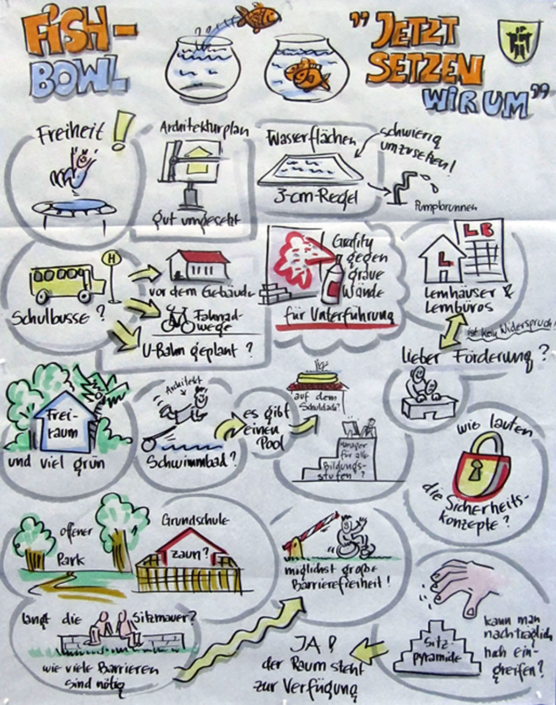 FISH-
BOWL
"JETZT
SETZEN
WIR UM"
Freiheit!
Architekturplan
gut umgesetzt
Wasserflächen
3-cm-Regel
schwierig
umzusetzen!
Pumpbrunnen
Schulbusse?
H
vor dem Gebäude
Fahrrad-
wege
U-Bahn geplant?
Grafity
gegen
graue
Wände
für Unterführung
L
LB
Lernhäuser &
Lernbüros
ist kein Widerspruch!
lieber Förderung?
Frei-
raum
und viel grün
Architekt
Schwimmbad?
es gibt
einen
Pool
auf dem
Schuldach?
für alle
Bildungs-
stufen?
wie lauten
die Sicherheits-
konzepte?
offener
Park
Grundschule
zaun?
möglichst große
Barrierefreiheit!
langt die Sitzmauer?
wie viele Barrieren
sind nötig
JA!
der Raum steht
zur Verfügung
Sitz
pyramide
kann man
nachträglich
noch ein-
greifen?